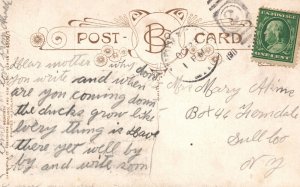 POST CARD
B
Dear mother why dont
you write and when
are you coming down
the ducks grow like
every thing is
there yet well by
by and write som
Miss Mary Atkins
Box 46 Ferndale
Sull Co
N Y
ONE CENT